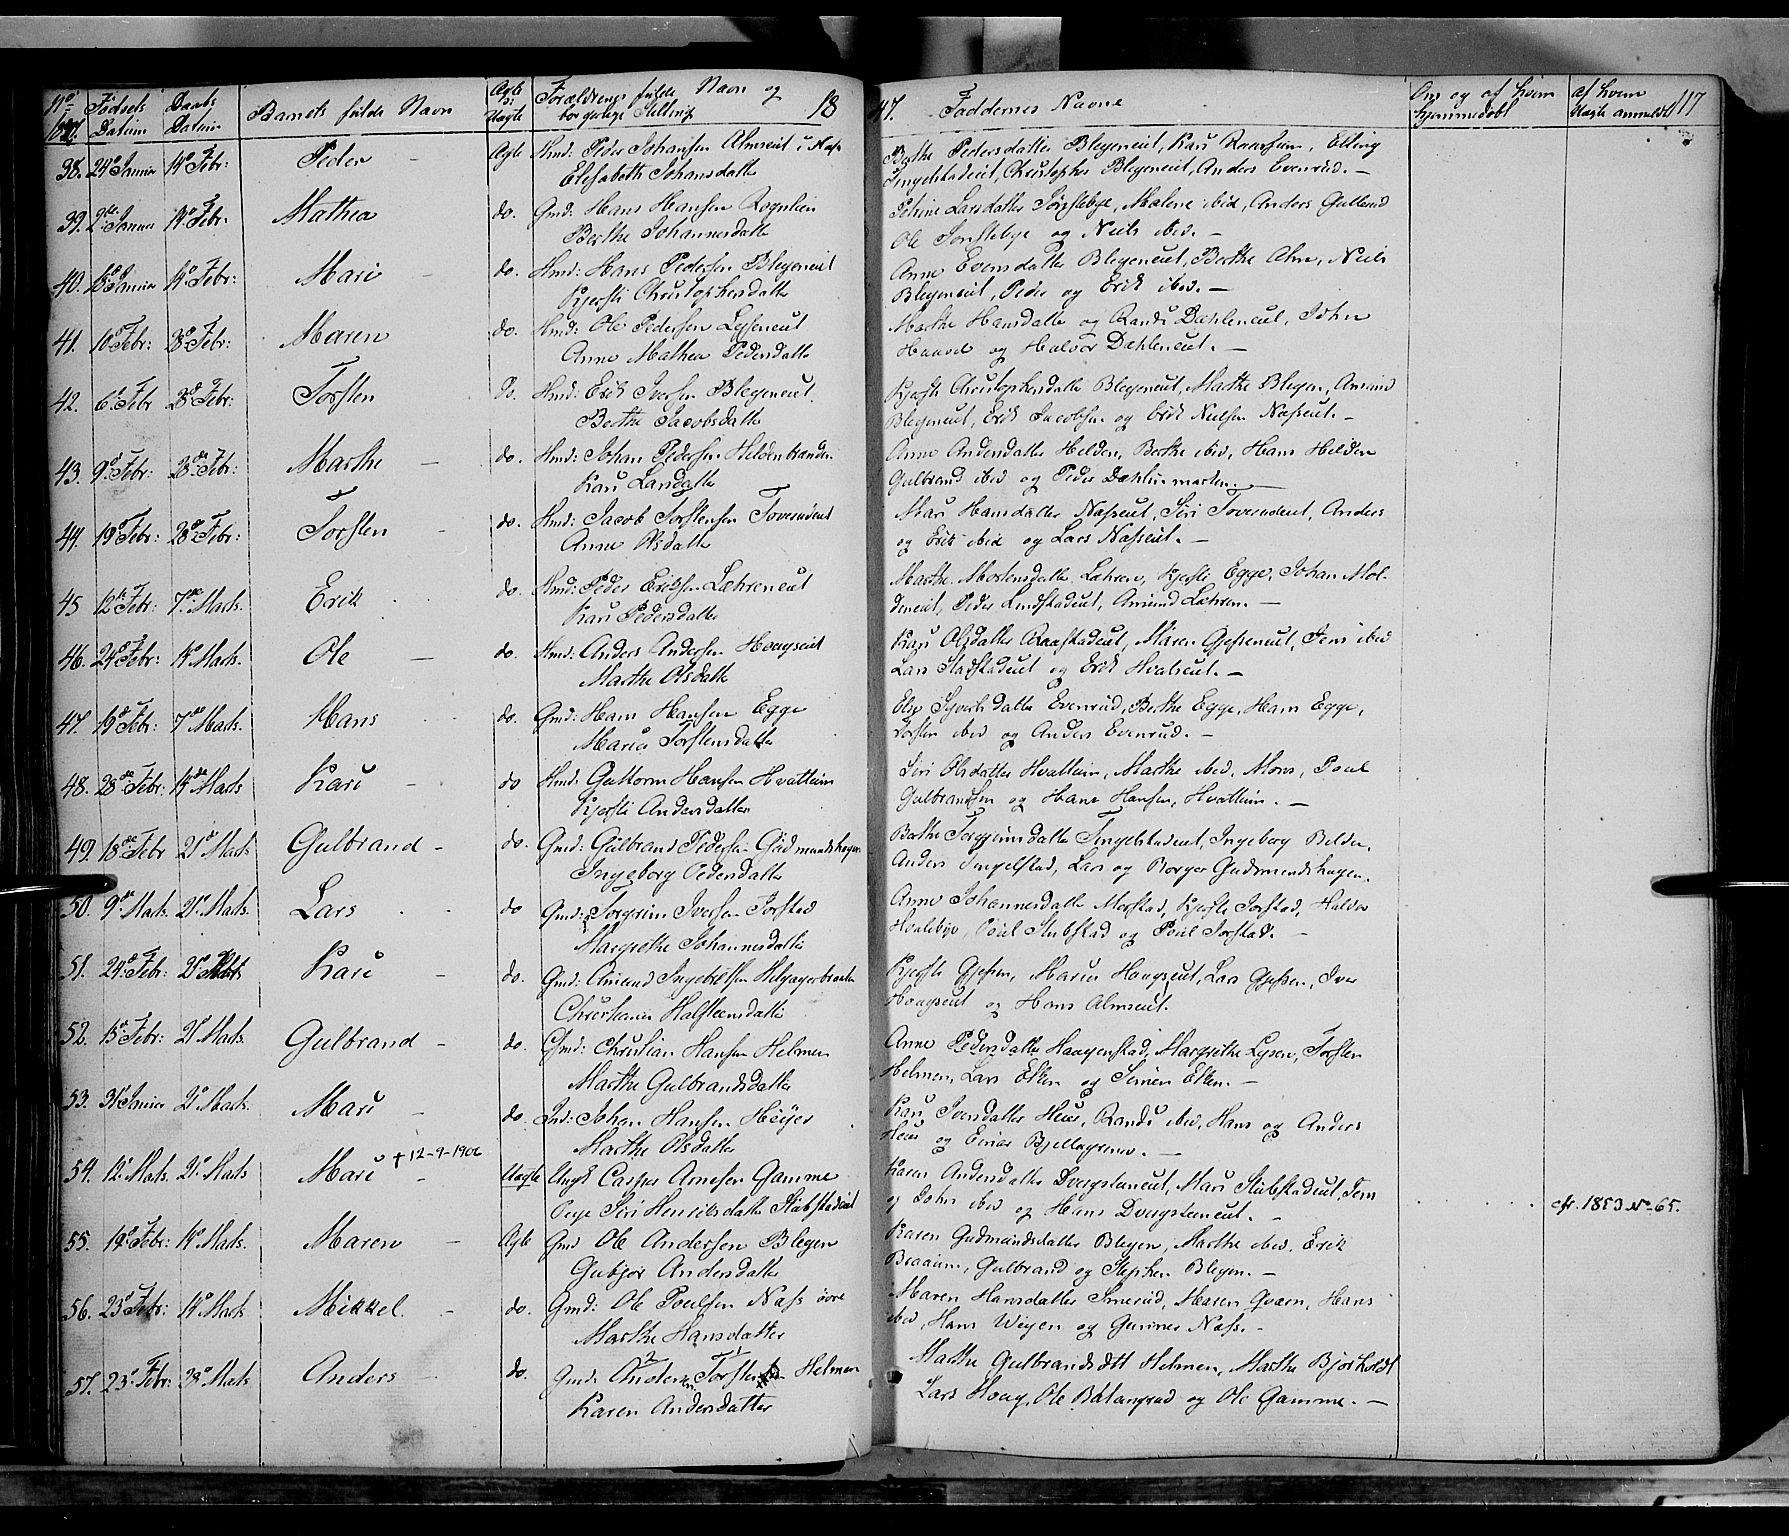 No Fødsels Daabs Barnets fulde Navn Ægte Forældrenes fulde Navn og 18
Datum Datum Uægte borgerlige Stilling
47. Faddernes Navne Om og af hvem af hvem 117
hjemmedøbt Uægte anmeldt
38. 24 Januar 14 Febr: Peder Ægte Hmd: Peder Johansen Almseiet i Næs
Elisabeth Johansdatter
Berthe Pedersdatter Blegeneiet, Kari Elling
Tingelstadeiet, Christopher Blegeneiet, Anders Evenrud. —
39. 2 Januar 14 Febr: Mathea do. Gmd: Hans Hansen Rognlien
Berthe Johannesdatter
Petrine Larsdatter Sørslebye, Malene ibid, Anders Gullerud
Ole og Niels ibid. —
40. Januar 14 Febr: Mari — do. Hmd: Hans Pedersen Blegeneiet
Kjersti Christophersdatter
Anne Evensdatter Blegeneiet, Berthe Alm, Niels
Blegeneiet, Peder og Erik ibid. —
41. 10 Febr: 28 Febr: Maren do. Hmd: Ole Pedersen Lyseneiet
Anne Mathea Pedersdatter
Marthe Hansdatter og Randi Dæhleneiet, John
Haaved og Halvor Dæhleneiet. —
42. 6 Febr 28 Febr: Torsten Do. Hmd: Erik Iversen Blegeneiet
Berthe Jacobsdatter
Kjersti Christophersdatter Blegeneiet, Marthe Blegen, Amund
Blegeneiet, Erik Jacobsen og Erik Nielsen Næsseiet. —
43. 9 Febr: 28 Febr: Marthe — do. Hmd: Johan Pedersen Heldenbraaten
Kari Larsdatter
Anne Andersdatter Helden, Berthe ibid, Hans Helden
Gulbrand ibid og Peder Dæhlinmarken. —
44. 19 Febr: 28 Febr: Torsten — do. Hmd: Jacob Torstensen Toverudeiet
Anne Olsdatter
Mari Hansdatter Næsseiet, Siri Toverudeiet, Anders
og Erik ibid og Lars Næsseiet. —
45 12 Febr: 7 Marts. Erik do. Hmd: Peder Eriksen Læhreneiet
Kari Pedersdatter
Marthe Mortensdatter Læhren, Kjersti Egge, Johan Mol-
deneiet, Peder Amund Læhren. —
46. 24 Febr: 14 Marts. Ole — do. Hmd: Anders Andersen Hougseiet
Marthe Olsdatter
Kari Olsdatter Raastadeiet, Maren Gjefseneiet, Jens ibid
Lars og Erik Hvalseiet. —
47. 19 Febr: 7 Marts. Hans do. Gmd: Hans Hansen Egge
Maria Torstensdatter
Else Syversdatter Evenrud, Berthe Egge, Hans Egge,
Torsten ibid og Anders Evenrud. —
48. 28 Febr: 14 Marts Kari — do Hmd: Guttorm Hansen Hvattum
Kjersti Andersdatter
Siri Olsdatter Hvattum, Marthe ibid, Mons, Poul
Gulbrandsen og Hans Hansen, Hvattum. —
49. 18 Febr 21 Marts Gulbrand — do. Gmd: Gulbrand Pedersen Gudmundshagen
Ingeborg Pedersdatter
Berthe Torgrimsdatter Tingelstadeiet, Ingeborg Bilden,
Anders Tingelstad, Lars og Borger Gudmundshagen.
50. 9 Marts. 21 Marts. Lars do Gmd: Torgrim Iversen Jorstad
Margrethe Johannesdatter
Anne Johannesdatter Morstad, Kjersti Jorstad, Halvor
Hvalebye, Poul Stubstad og Poul Jorstad. —
51. 24 Febr: 21 Marts Kari — do. Gmd: Amund Ingebretsen Helgagerbraaten
Christiane Halsteensdatter
Kjersti Gjefsen, Maria Hougseiet, Lars Gjefsen, Iver
Hougseiet og Hans Almseiet.
52. 13 Febr: 21 Marts. Gulbrand — do. Gmd: Christian Hansen Helmen
Marthe Gulbrandsdatter
Anne Pedersdatter Haagenstad, Margrethe Lysen, Torsten
Helmen, Lars Elken og Simen Elken. —
53. 31 Januar 21 Marts. Mari — do Ind: Johan Hansen Heyer
Marthe Olsdatter
Kari Iversdatter Heier, Randi ibid, Hans og Anders
Heier og Einar . —
54. 12 Marts. 21 Marts Mari — † 12-9-1906 Uægte Ungk Casper Arnesen Gamme
Pige Siri Henriksdatter Stubstadeiet
Karen Andersdatter Dvergsteneiet, Mari Stubstadeiet, Jens
og ibid og Hans Dvergsteneiet. — cfr. 1853 No 65.
55. 19 Febr: 14 Marts. Maren — Ægte Gmd Ole Andersen Blegen
Gubjør Andersdatter
Karen Gudmundsdatter Blegen, Marthe ibid, Erik
Braaum, Gulbrand og Stephen Blegen. —
56. 23 Febr: 14 Marts Mikkel — do. Gmd: Ole Poulsen Næss øvre
Marthe Hansdatter
Maren Hansdatter Smerud, Maren Qværn, Hans
ibid, Hans Wigen og Gunner Næss. —
57. 23 Febr: 28 Marts Anders — do. Gmd: Anders Torsten Helmen
Karen Andersdatter
Marthe Gulbrandsdtt Helmen, Marthe Bjørholdt
Lars Houg, Ole Balangrud og Ole Gamme. —